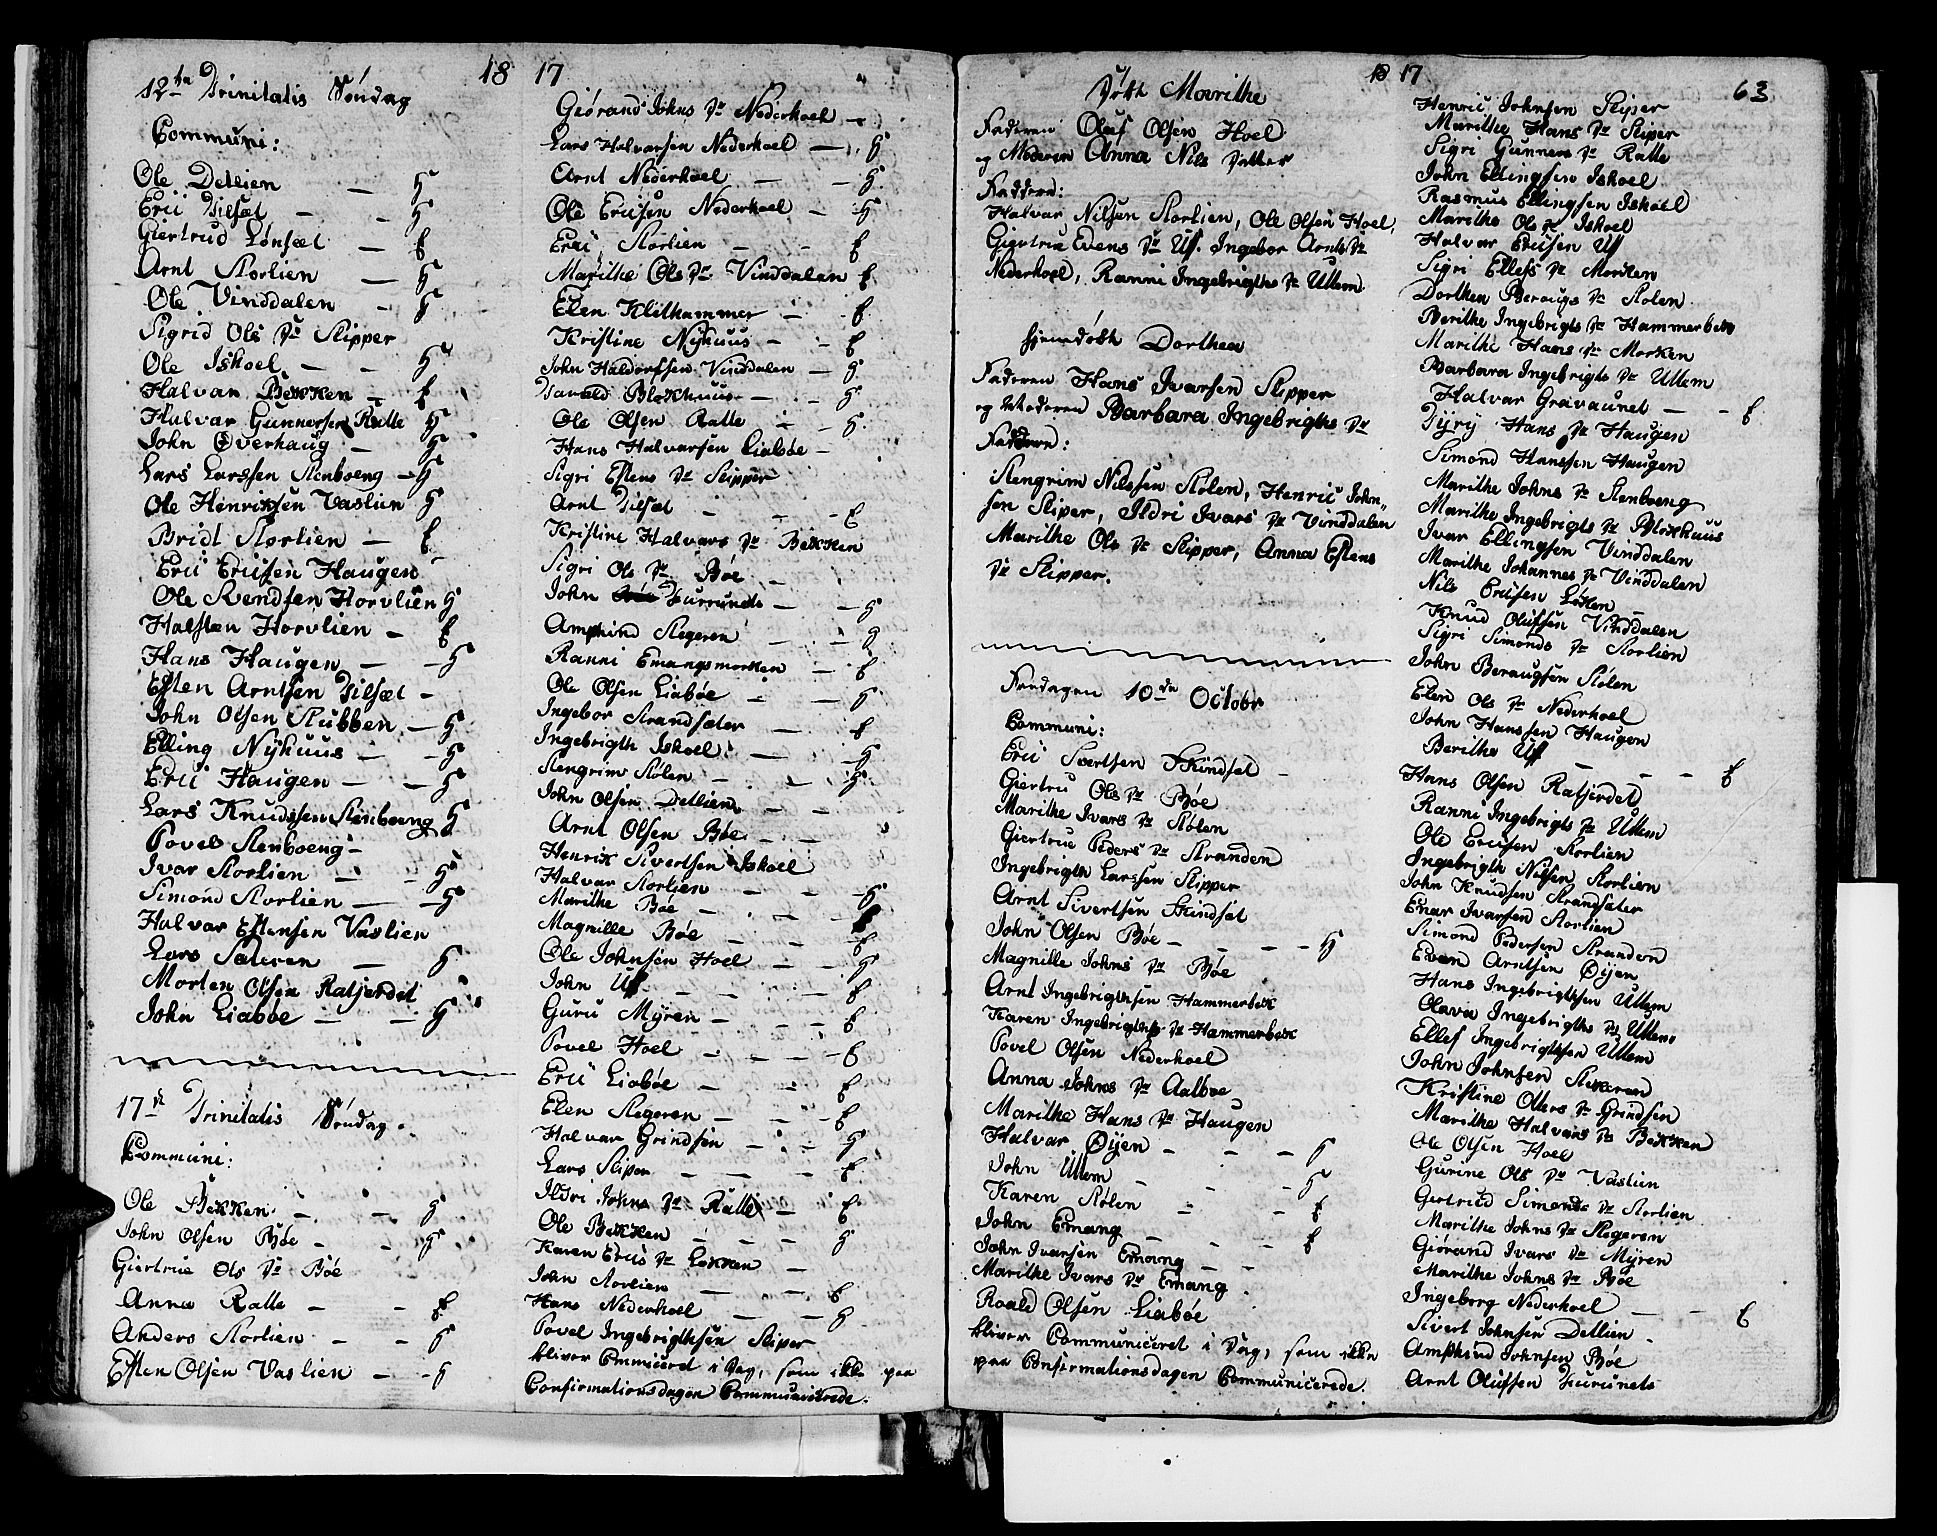 18 17
12te Trinitatis Søndag
Communi:
Ole Detlien — H
Eric Vilsæt — — H
Giertrud Lønsæt — E
Arnt Storlien — H
Ole Vinddalen — H
Sigrid Ols Dr Slipper
Ole Iskoel — — H
Halvar Bekken — E
Halvar Gunnersen Ratte H
John Øverhaug — H
Lars Larssen Stenboeng — H
Ole Henriksen Vaslien H
Bridt Storlien — E
Eric Ericsen Haugen
Ole Svendsen Horvlien H
Halsten Horvlien — E
Hans Haugen — — H
Esten Arntsen Vilsæt —
John Olsen Stubben — H
Elling Nyhuus — — H
Eric Haugen — — H
Lars Knudssen Stenboeng H
Povel Stenboeng —
Ivar Storlien — — H
Simond Storlien — — H
Halvar Estensen Vaslien
Lars Sæteren — H
Morten Olsen Ratjerdet
John Liabøe — — H
17de Trinitatis Søndag.
Communi:
Ole Bekken — — H
John Olsen Bøe — — H
Giertrue Ols Dr Bøe
Anna Ratte — — E
Anders Storlien — — H
Esten Olsen Vaslien — H
Giørand Johns Dr Nederhoel —
Lars Halvarsen Nederhoel — H
Arnt Nederhoel — — H
Ole Ericsen Nederhoel — H
Eric Storlien — — E
Marithe Ols Dr Vinddalen E
Elen Klethammer — E
Kristine Nyhuus — — E
John Haldorssen Vinddalen — H
Blokhuus — — H
Ole Olsen Ratte — H
Hans Halvarsen Liabøe —
Sigri Estens Dr Slipper
Arnt Vilsæt — — — E
Kristine Halvars Dr Bekken
Sigri Ols Dr Bøe —
John Furrunets — — H
Amphind Stegeren — — H
Ranni Emangsmorken — E
Ole Olsen Liabøe — — H
Ingebor Strandsæter — E
Ingebrigth Iskoel — — H
Stengrim Stølen — — H
John Olsen Detlien — —
Arnt Olsen Bøe — —
Henrik Sivertsen Iskoel
Halvar Storlien — — H
Marithe Bøe — — E
Magnille Bøe — — E
Ole Johnsen Hoel — — H
John Uff — — — E
Guru Myren — — E
Povel Hoel — — E
Eric Liabøe — — E
Elen Stegeren — — E
Halvar Grindsen — — H
Lars Sliper — — — E
Ildri Johns Dr Ratte — E
Ole Bekken — — — H
Karen Erics Dr Løkken —
John Storlien — — — E
Hans Nederhoel — — H
Povel Ingebrigthsen Sliper
bliver Communiceret i Dag, som ikke paa
Confirmationsdagen Communicerede.
18 17
63
Døbt Marithe
Faderen Oluf Olsen Hoel
og Moderen Anna Nils Datter
Faddere:
Halvar Nilsen Storlien, Ole Olsen Hoel,
Giertrue Evens Dr Uff. Ingebor Arnts Dr
Nederhoel, Ranni Ingebrigths Dr Uttem.
hjemdøbt Dorthea
Faderen Hans Ivarsen Slipper
og Moderen Barbara Ingebrigths Dr
Faddere:
Stengrim Nilssen Stølen, Henric John-
sen Sliper, Ildri Ivars Dr Vinddalen
Marithe Ols Dr Slipper, Anna Estens
Dr Slipper.
Fredagen 10de Octobr
Communi:
Eric Ivertsen Skindsæt —
Giertru Ols Dr Bøe
Marithe Ivars Dr Stølen
Giertrue Peders Dr Stranden
Ingebrigth Larssen Slipper
Arnt Sivertsen Skindsæt
John Olsen Bøe — — — H
Magnille Johns Dr Bøe
Arnt Ingebrigthsen Hammerbek
Karen Ingebrigths Dr Hammerbek
Povel Olsen Nederhoel
Anna Johns Dr Aalboe
Marithe Hans Dr Haugen
Halvar Øyen — — — H
John Uttem — — — H
Karen Stølen — — — E
John Emang — — — E
John Ivarsen Emang — —
Marithe Ivars Dr Emang —
Roald Olsen Liabøe
bliver Communiceret i Dag, som ikke
paa Confirmationsdagen Communicerede.
Henric Johnsen Sliper
Marithe Hans Dr Sliper
Sigri Gunners Dr Ratte
John Ellingsen Iskoel
Rasmus Ellingsen Iskoel
Marithe Ols Dr Iskoel
Halvar Ericsen Uff
Sigri Ellefs Dr Morken
Dorthea Beraugs Dr Stølen
Berithe Ingebrigts Dr Hammerbek
Marithe Hans Dr Morken
Barbara Ingebrigts Dr Uttem
Halvar Gravaunet — — E
Hans Dr Haugen
Simond Hanssen Haugen
Marithe Johns Dr Stenboeng
Marithe Ingebrigts Dr Blokhuus
Ivar Ellingsen Vinddalen
Marithe Johannes Dr Vinddalen
Nils Ericsen Løken
Knud Olufsen Vinddalen
Sigri Simonds Dr Storlien
John Beraugsen Stølen
Elen Ols Dr Nederhoel
John Hanssen Haugen
Berithe Uff — — — E
Hans Olsen Ratjerdet
Ranni Ingebrigts Dr Uttem
Ole Ericsen Storlien
Ingebrigth Nilsen Storlien
John Knudsen Strandsæter
Enar Ivarsen Storlien
Simond Pedersen Stranden
Even Arntsen Øyen
Hans Ingebrigthsen Uttem
Olava Ingebrigths Dr Uttem
Ellef Ingebrigthsen Uttem
John Johnsen Stegeren
Kristine Olers Dr Grindsen
Marithe Halvars Dr Bekken
Ole Olsen Hoel
Gurine Ols Dr Vaslien
Giertrud Simonds Dr Storlien
Marithe Johns Dr Stegeren
Giørand Ivars Dr Myren
Marithe Johns Dr Bøe
Ingeborg Nederhoel — — E
Sivert Johnsen Detlien —
Amphind Johnsen Bøe
Arnt Olufsen Furunets